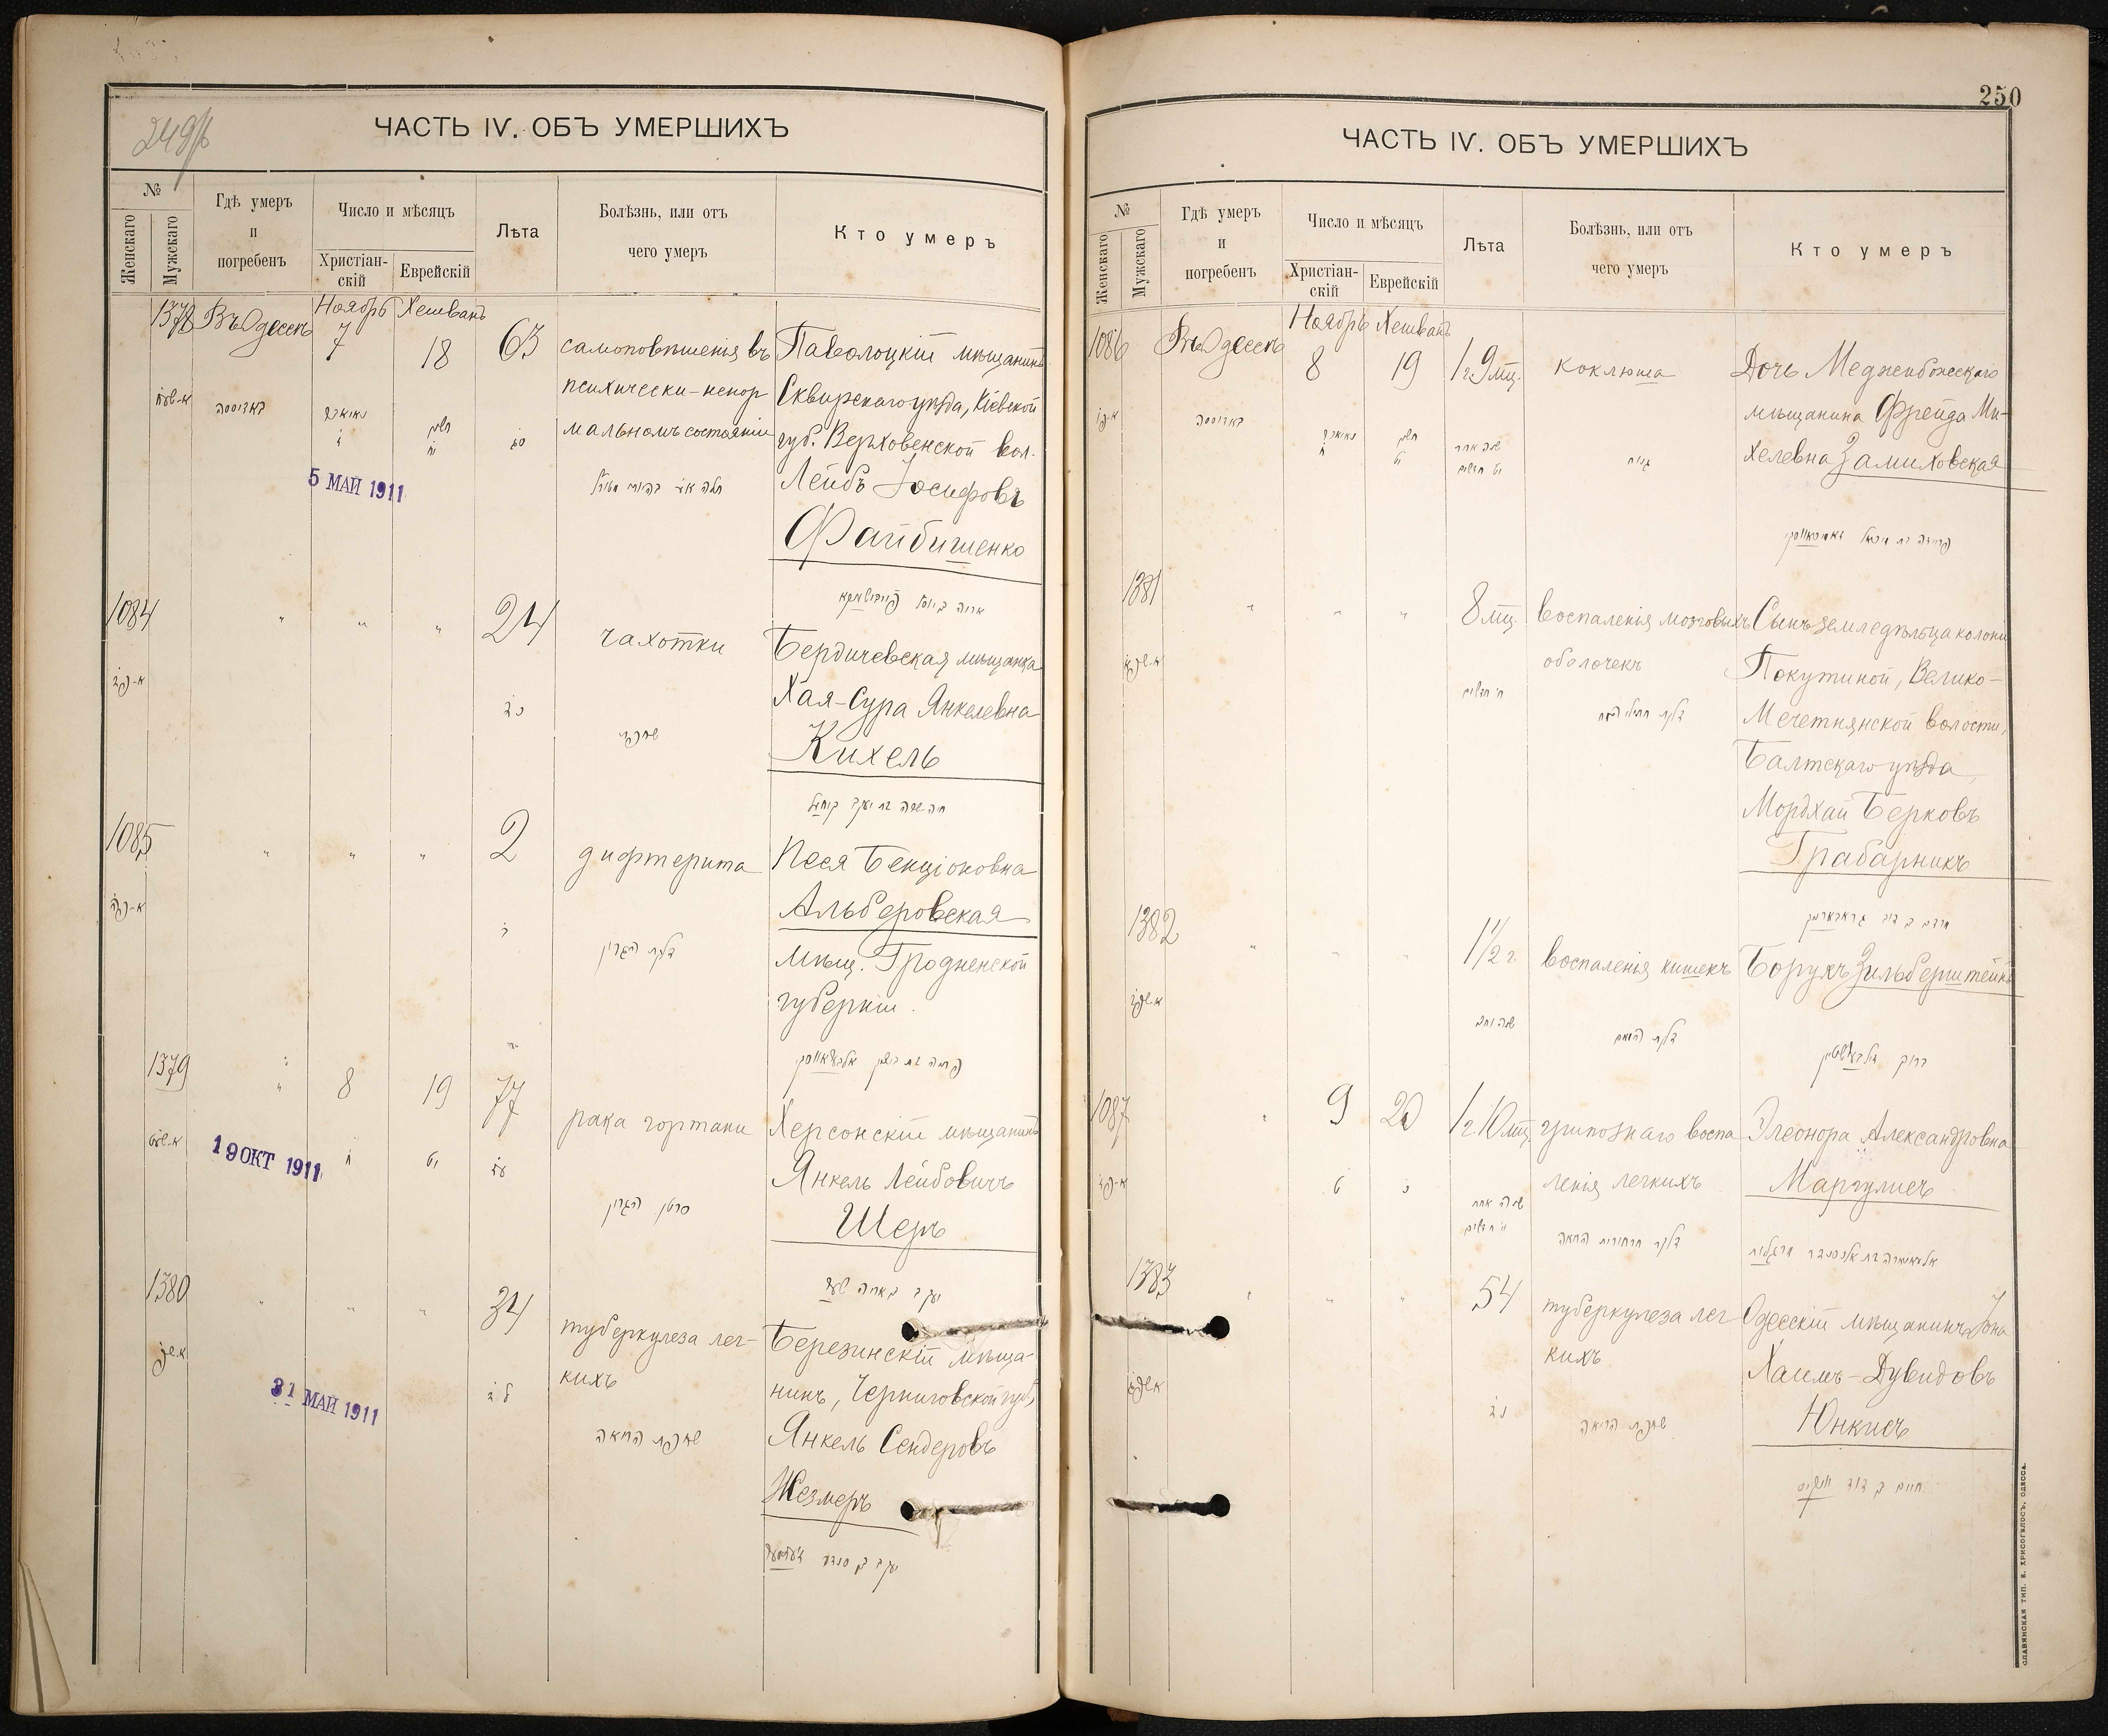 249/б
ЧАСТЬ IV. ОБЪ УМЕРШИХЪ
№
Женскаго
Мужскаго
Гдѣ умеръ
и
погребенъ
Число и мѣсяцъ
Христіан-
скій
Еврейскій
Лѣта
Болѣзнь, или отъ
чего умеръ
Кто умеръ
1378 Въ Одессѣ Ноябрь 7 Хешванъ 18 63
самоповѣшенія въ
психически-ненор
мальномъ состояніи
Паволоцкій мѣщанинъ
Сквирскаго уѣзда, Кіевской
губ. Верховенской вол.
Лейбъ Іосифовъ
Файбишенко
באדיססה
נאיאבר
חשון
סג
5 МАЙ 1911
1084 " " " 24
чахотки
Бердичевская мѣщанка
Хая-Сура Янкелевна
Кихель
כד
שחפת
חיה שרה בת יעקב קיחעל
1085 " " " 2
дифтерита
Песя Бенціоновна
Альберовская
мѣщ. Гродненской
губерніи.
ב
דלקת הגרון
1379 " 8 19 77
рака гортани
Херсонскій мѣщанинъ
Янкель Лейбовичъ
Шеръ
ח
יט
עז
סרטן הגרון
יעקב ב אריה שער
19 ОКТ 1911
1380 " " " 34
туберкулеза лег-
кихъ
Березинскій мѣща-
нинъ, Черниговской губ,
Янкель Сендеровъ
Жезмеръ
לד
שחפת הריאה
31 МАЙ 1911
250
ЧАСТЬ IV. ОБЪ УМЕРШИХЪ
№
Женскаго
Мужскаго
Гдѣ умеръ
и
погребенъ
Число и мѣсяцъ
Христіан-
скій
Еврейскій
Лѣта
Болѣзнь, или отъ
чего умеръ
Кто умеръ
1086 Въ Одессѣ Ноябрь 8 Хешванъ 19 1 г. 9 мц.
коклюша
Дочь Меджибожскаго
мѣщанина Фрейда Ми-
хелевна Замиховская
באדיססה
נאיאבר
ח
חשון
יט
שנה אחת
ט חדשים
1381 " " " 8 мц.
воспаленія мозговыхъ
оболочекъ
Сынъ земледѣльца колоніи
Покутиной, Велико-
Мечетнянской волости,
Балтскаго уѣзда,
Мордхай Берковъ
Грабарникъ
ח' חדשים
1382 " " " 1 1/2 г.
воспаленія кишекъ
Борухъ Зильберштейнъ
שנה וחצי
ברוך זילבערשטיין
1087 " 9 20 1 г. 10 мц.
грипознаго воспа
ленія легкихъ
Элеонора Александровна
Маргулисъ
ט
כ
שנה אחת
י' חדשים
1383 " " " 54
туберкулеза лег
кихъ
Одесскій мѣщанинъ Іона
Хаимъ-Дувидовъ
Юнкисъ
נד
שחפת הריאה
СЛАВЯНСКАЯ ТИП. Е. ХРИСОГЕЛОСЪ, ОДЕССА.